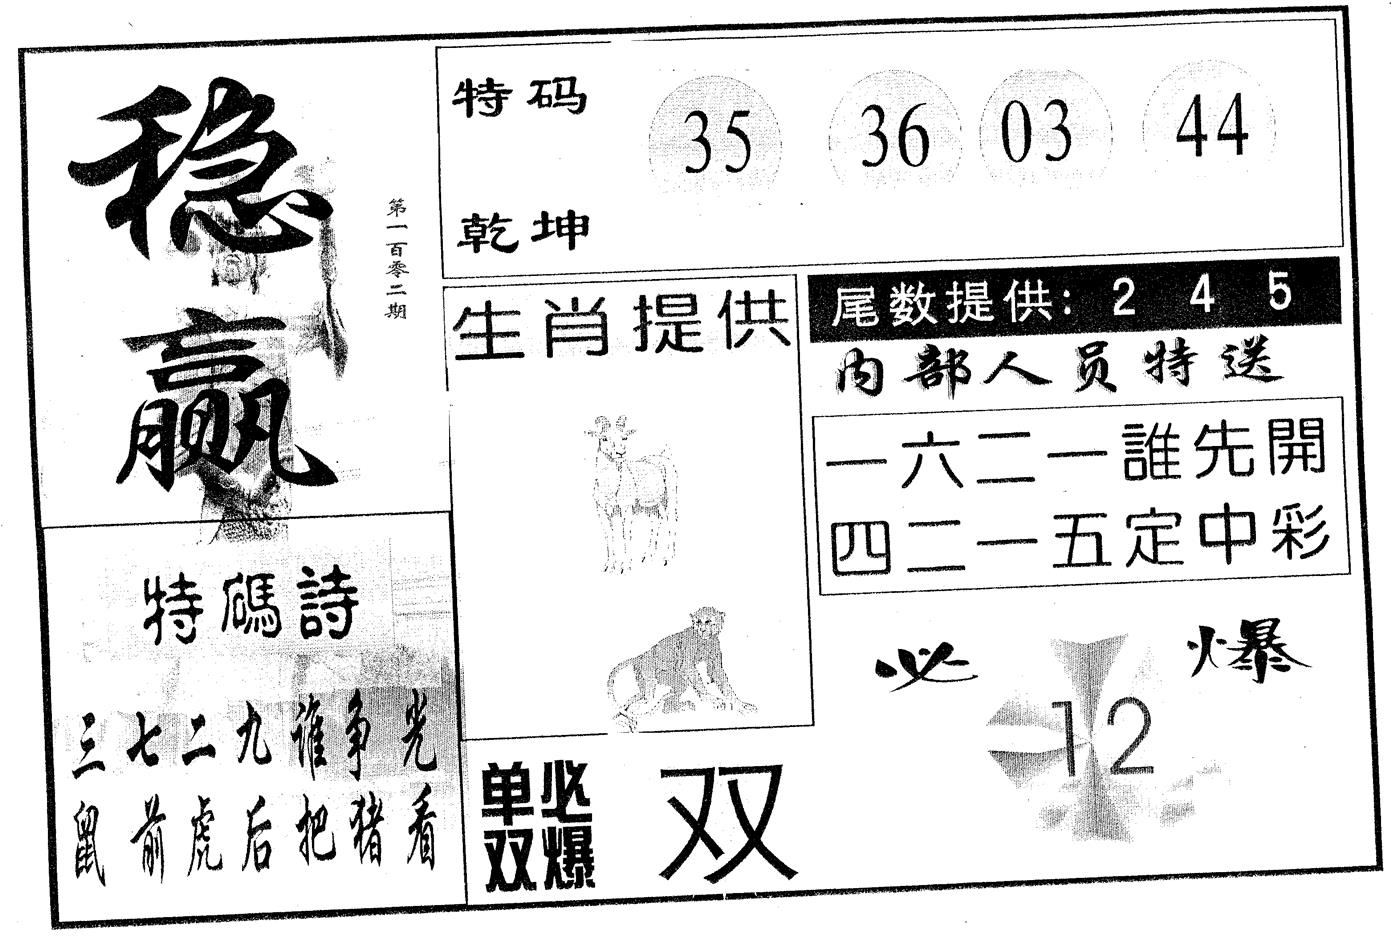 稳赢
第一百零二期
特码
乾坤
35 36 03 44
生肖提供
尾数提供: 2 4 5
内部人员特送
一六二一誰先開
四二一五定中彩
特碼詩
三七二九谁争光
鼠前虎后把猪看
必爆
12
单双
必爆
双